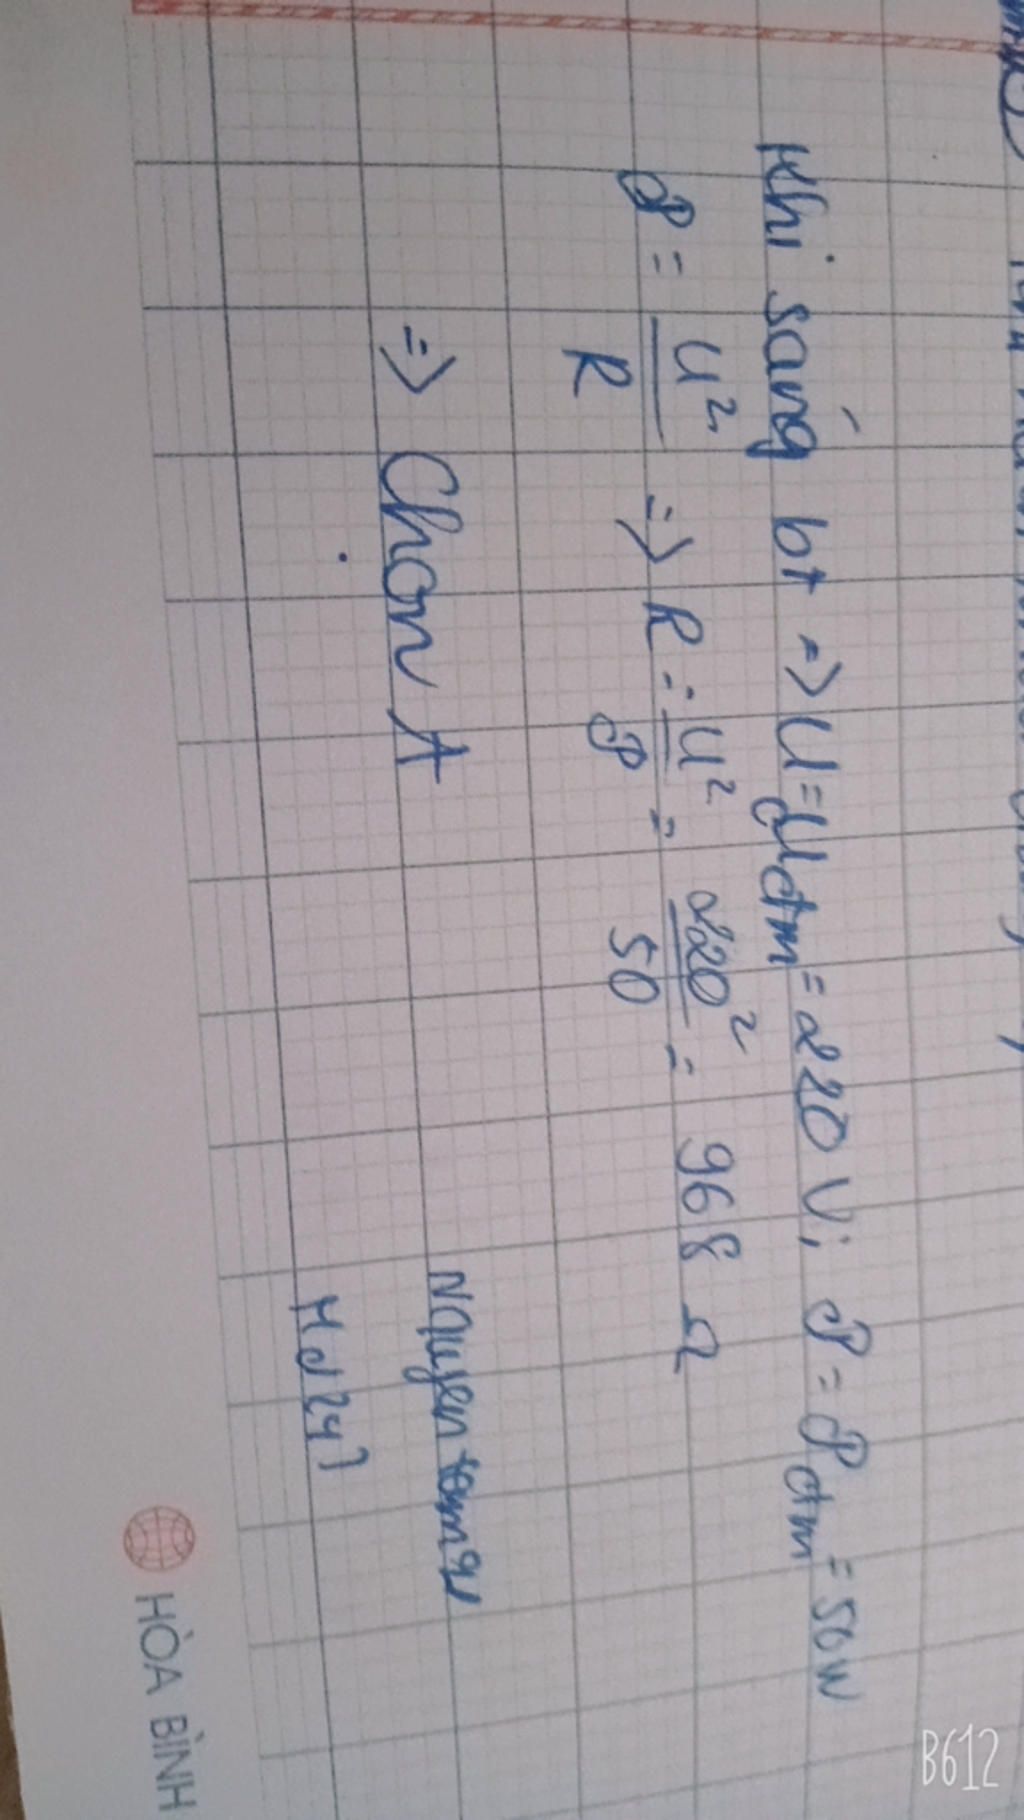 Khi sáng bt => U = Uđm = 220 V; P = Pđm = 50W
P = U²/R => R = U²/P = 220²/50 = 968 Ω
=> Chọn A
Nguyen tom
Hd247
HÒA BÌNH
B612